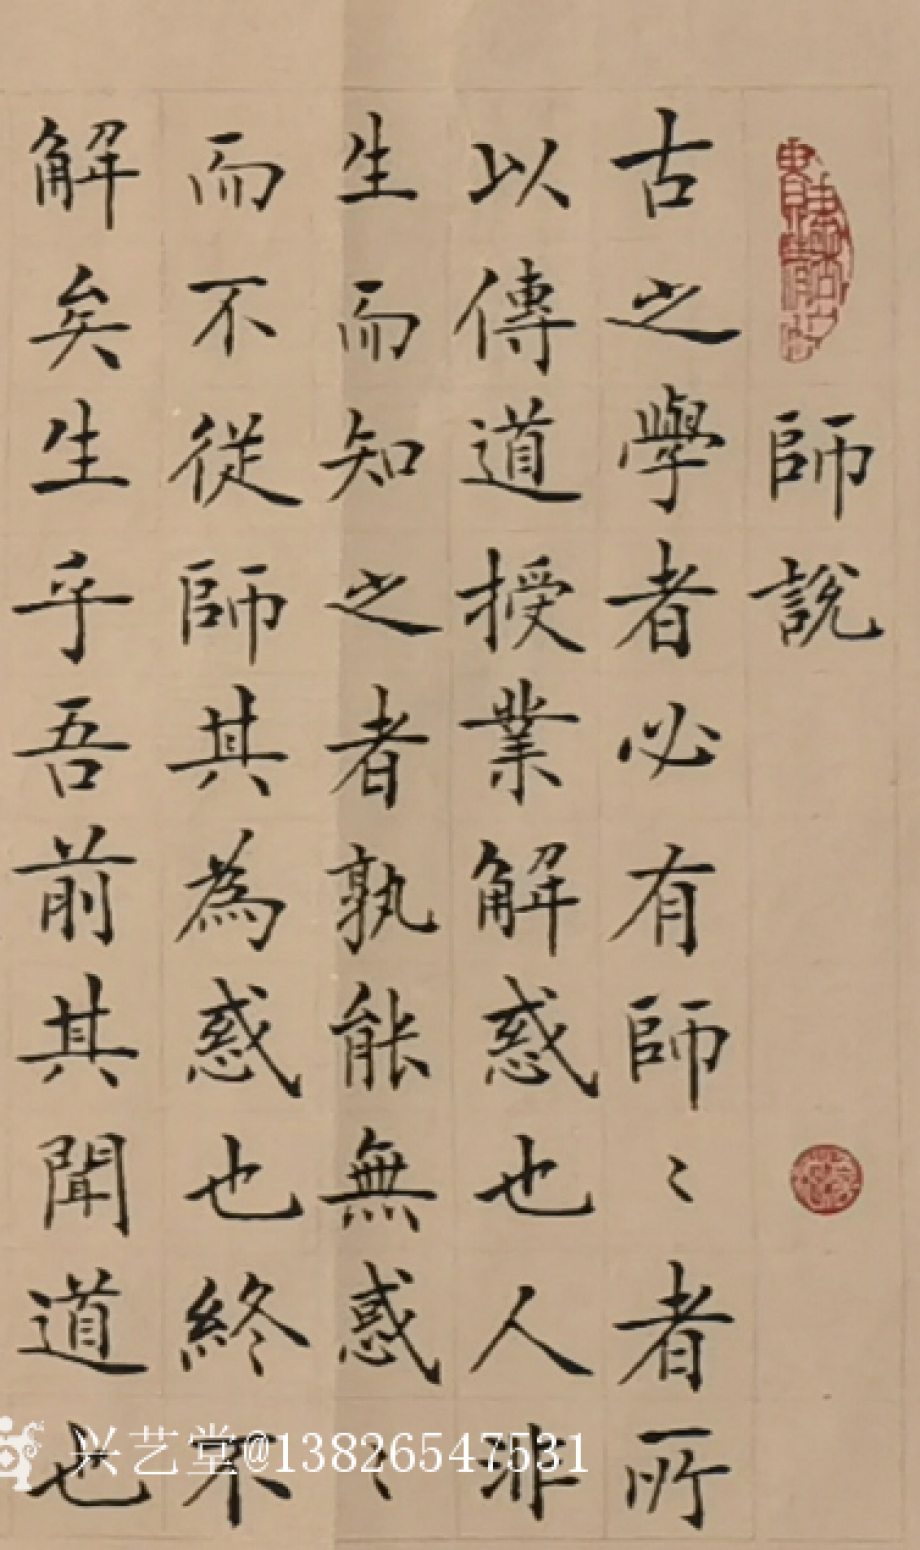 師說
古之學者必有師〻者所
以傳道授業解惑也人非
生而知之者孰能無惑〻
而不從師其為惑也終不
解矣生乎吾前其聞道也
兴艺堂@13826547531